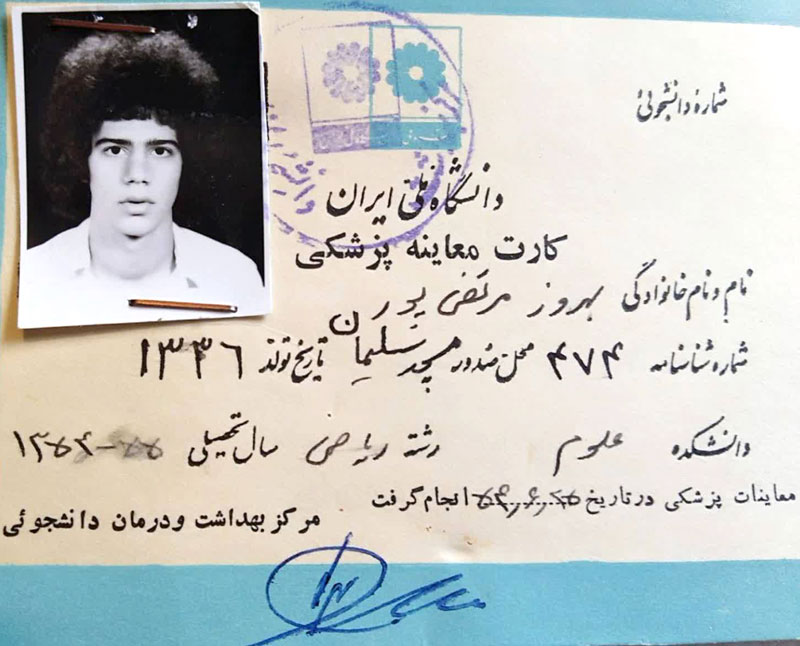 شماره دانشجوئی
دانشگاه ملی ایران
کارت معاینه پزشکی
نام و نام خانوادگی بهروز مرتضی پور
شماره شناسنامه ۴۷۴ محل صدور مسجد سلیمان تاریخ تولد ۱۳۳۶
دانشکده علوم رشته ریاضی سال تحصیلی ۱۳۵۴-۵۵
معاینات پزشکی در تاریخ انجام گرفت
مرکز بهداشت و درمان دانشجوئی